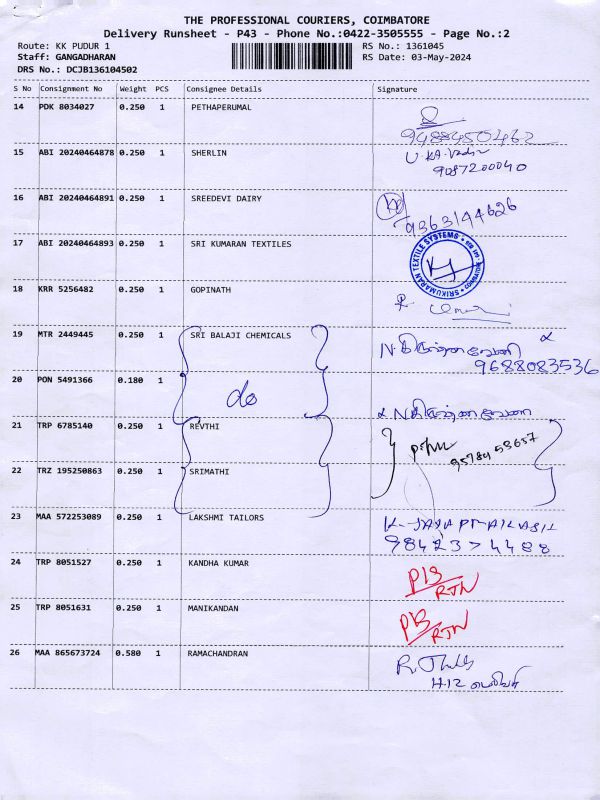 THE PROFESSIONAL COURIERS, COIMBATORE
Delivery Runsheet - P43 - Phone No.:0422-3505555 - Page No.:2
Route: KK PUDUR 1 RS No.: 1361045
Staff: GANGADHARAN RS Date: 03-May-2024
DRS No.: DCJB136104502
S No Consignment No Weight PCS Consignee Details Signature
14 PDK 8034027 0.250 1 PETHAPERUMAL
9488450462
15 ABI 20240464878 0.250 1 SHERLIN
9087200040
16 ABI 20240464891 0.250 1 SREEDEVI DAIRY
9363144626
17 ABI 20240464893 0.250 1 SRI KUMARAN TEXTILES
SRIKUMARAN TEXTILE SYSTEMS
18 KRR 5256482 0.250 1 GOPINATH
19 MTR 2449445 0.250 1 SRI BALAJI CHEMICALS
9688083536
20 PON 5491366 0.180 1 do
21 TRP 6785140 0.250 1 REVTHI
9578453657
22 TRZ 195250863 0.250 1 SRIMATHI
23 MAA 572253089 0.250 1 LAKSHMI TAILORS
9842374488
24 TRP 8051527 0.250 1 KANDHA KUMAR
RTN
25 TRP 8051631 0.250 1 MANIKANDAN
RTN
26 MAA 865673724 0.580 1 RAMACHANDRAN